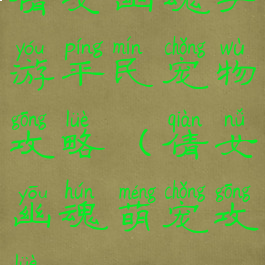 倩女幽魂手
yóu píng mín chǒng wù
游平民宠物
gōng lüè qiàn nǚ
攻略（倩女
yōu hún méng chǒng gōng
幽魂萌宠攻
lüè